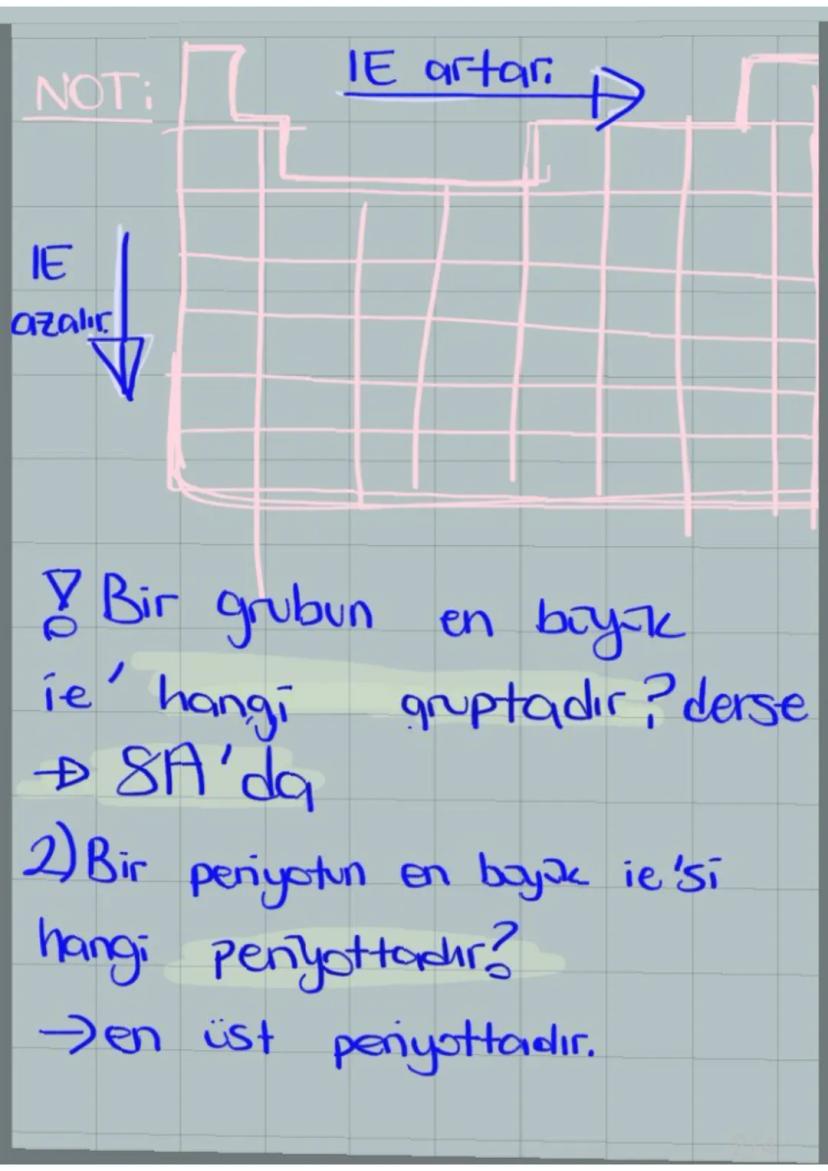 NOT:
IE artar.
IE
azalır.
! Bir grubun en büyük
ie' hangi gruptadır? derse
→ 8A'da
2) Bir periyotun en büyük ie'si
hangi periyottadır?
→ en üst periyottadır.